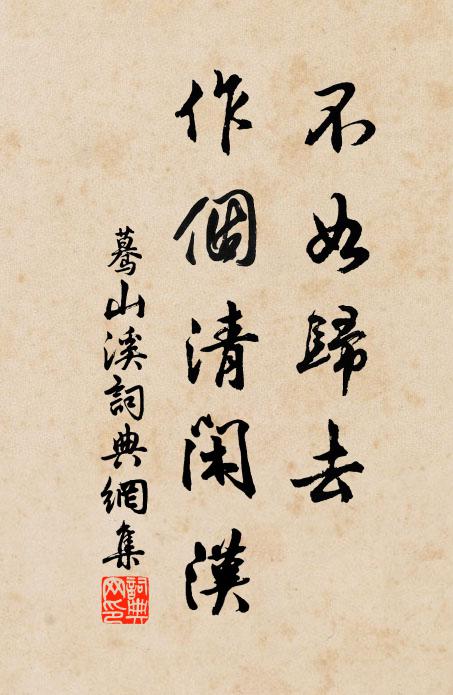 不如歸去
作個清閑漢
驀山溪詞典網集
詞典网印